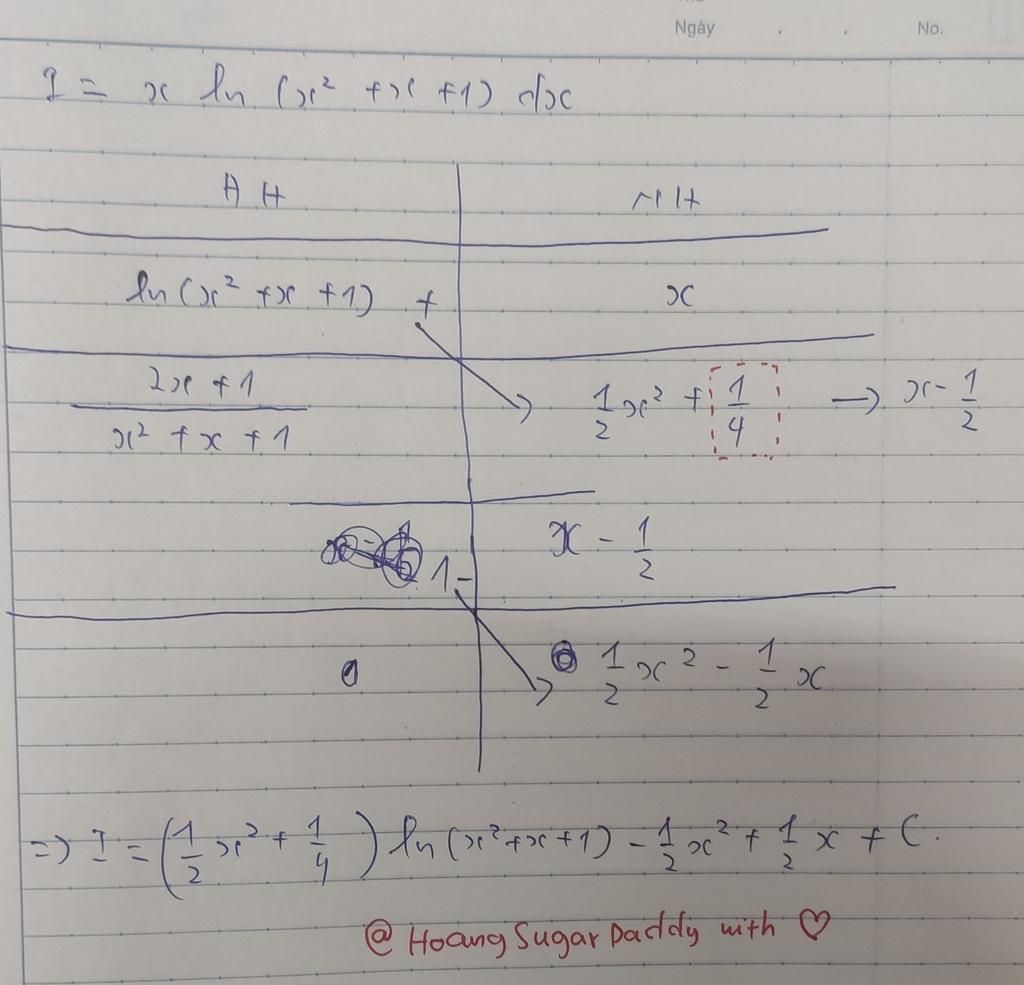 Ngày . . No.
I = x ln (x² + x + 1) dx
ĐH NH
ln(x² + x + 1) + x
2x + 1 / x² + x + 1 1/2 x² + 1/4 → x - 1/2
1 - x - 1/2
0 1/2 x² - 1/2 x
=> I = (1/2 x² + 1/4) ln (x² + x + 1) - 1/2 x² + 1/2 x + C.
@ Hoang Sugar Daddy with ♡